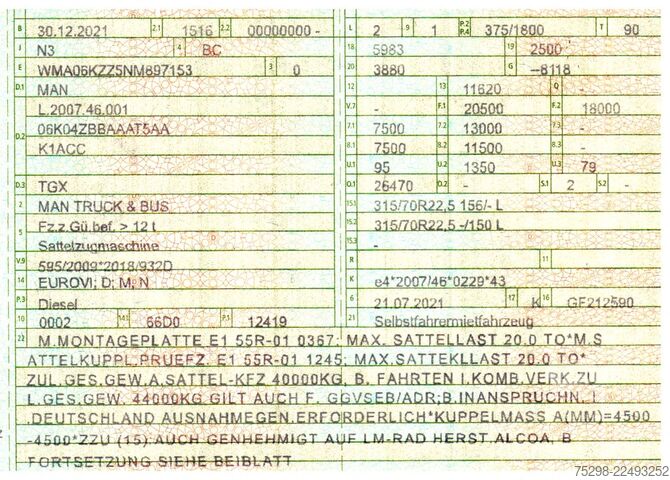 B 30.12.2021 2.1 1516 2.2 00000000 - L 2 9 1 P.2 P.4 375/1800 T 90
J N3 4 BC 18 5983 19 2500
E WMA06KZZ5NM897153 3 0 20 3880 G -8118
D.1 MAN 12 - 13 11620 Q -
L.2007.46.001 V.7 - F.1 20500 F.2 18000
D.2 06K04ZBBAAAT5AA 7.1 7500 7.2 13000 7.3 -
K1ACC 8.1 7500 8.2 11500 8.3 -
U.1 95 U.2 1350 U.3 79
D.3 TGX O.1 26470 O.2 - S.1 2 S.2 -
2 MAN TRUCK & BUS 15.1 315/70R22,5 156/- L
5 Fz.z.Gü.bef. > 12 t 15.2 315/70R22,5 -/150 L
Sattelzugmaschine 15.3 -
V.9 595/2009*2018/932D R 11 -
14 EUROVI; D; M, N K e4*2007/46*0229*43
P.3 Diesel 6 21.07.2021 17 K 16 GF212590
10 0002 14.1 66D0 P.1 12419 21 Selbstfahrermietfahrzeug
22 M.MONTAGEPLATTE E1 55R-01 0367; MAX. SATTELLAST 20.0 TO*M.S
ATTELKUPPL.PRUEFZ. E1 55R-01 1245; MAX.SATTEKLLAST 20.0 TO*
ZUL.GES.GEW.A.SATTEL-KFZ 40000KG, B. FAHRTEN I.KOMB.VERK.ZU
L.GES.GEW. 44000KG GILT AUCH F. GGVSEB/ADR;B.INANSPRUCHN. I
.DEUTSCHLAND AUSNAHMEGEN.ERFORDERLICH*KUPPELMASS A(MM)=4500
-4500*ZZU (15) AUCH GENHEHMIGT AUF LM-RAD HERST.ALCOA, B
FORTSETZUNG SIEHE BEIBLATT
75298-22493252